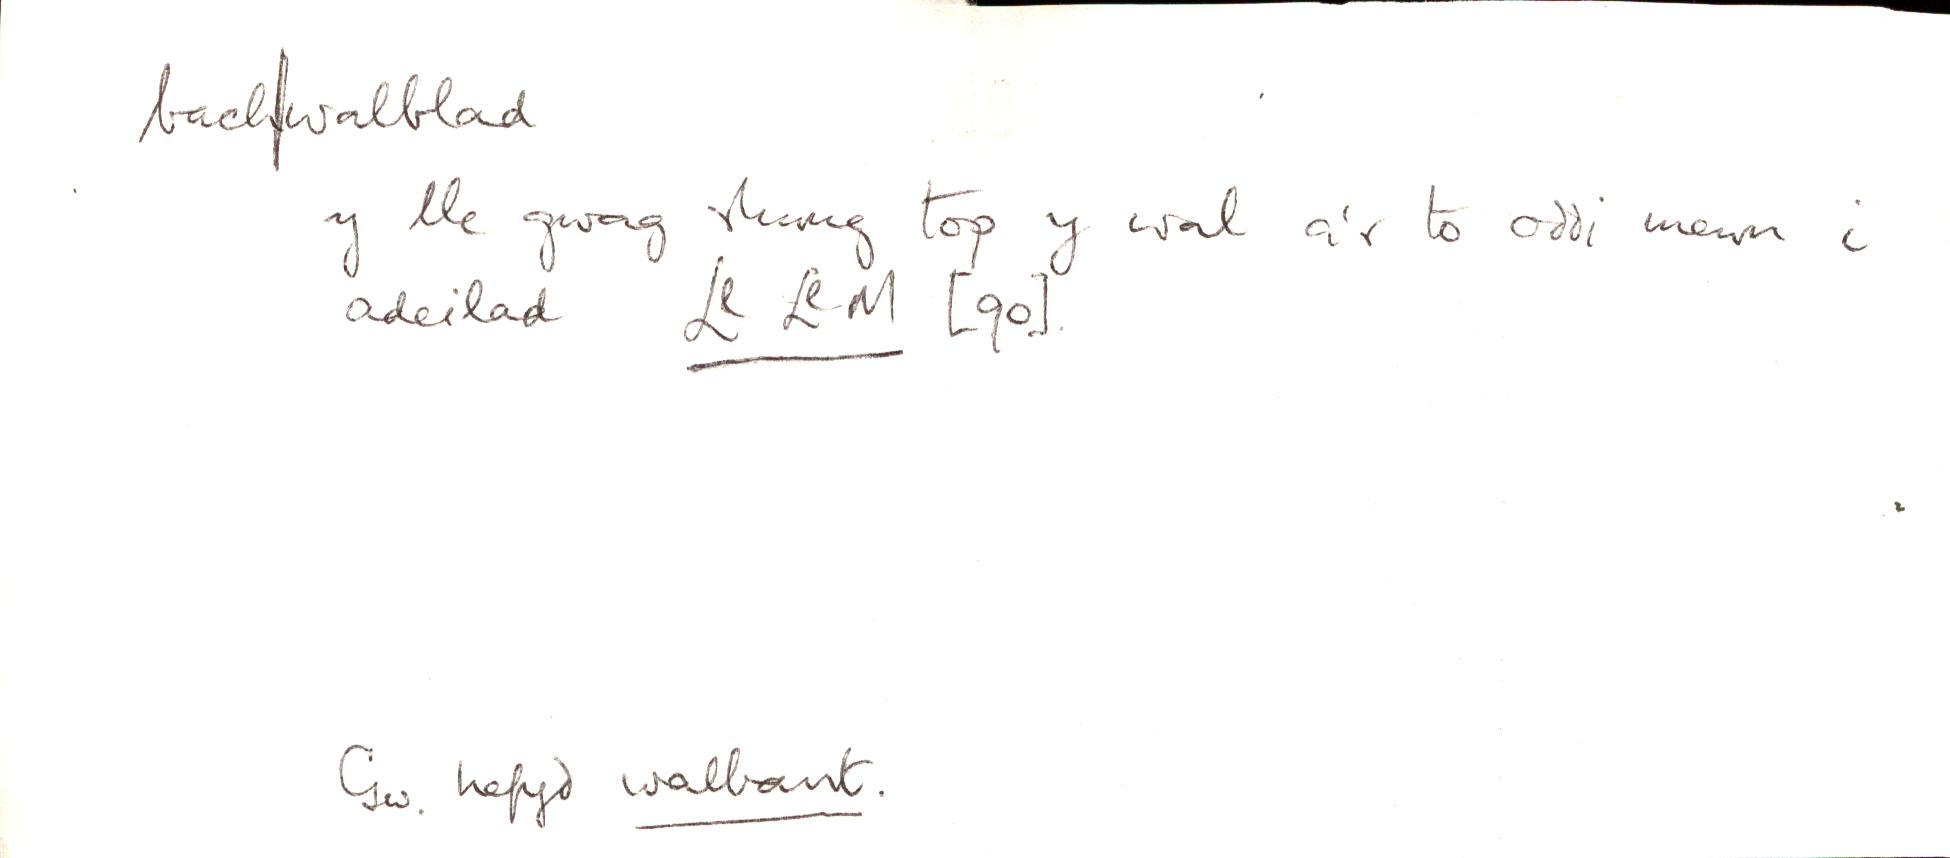 bach|walblad
y lle gwag rhwng top y wal a'r to oddi mewn i
adeilad Ll Ll M [90].
Gw. hefyd walbant.